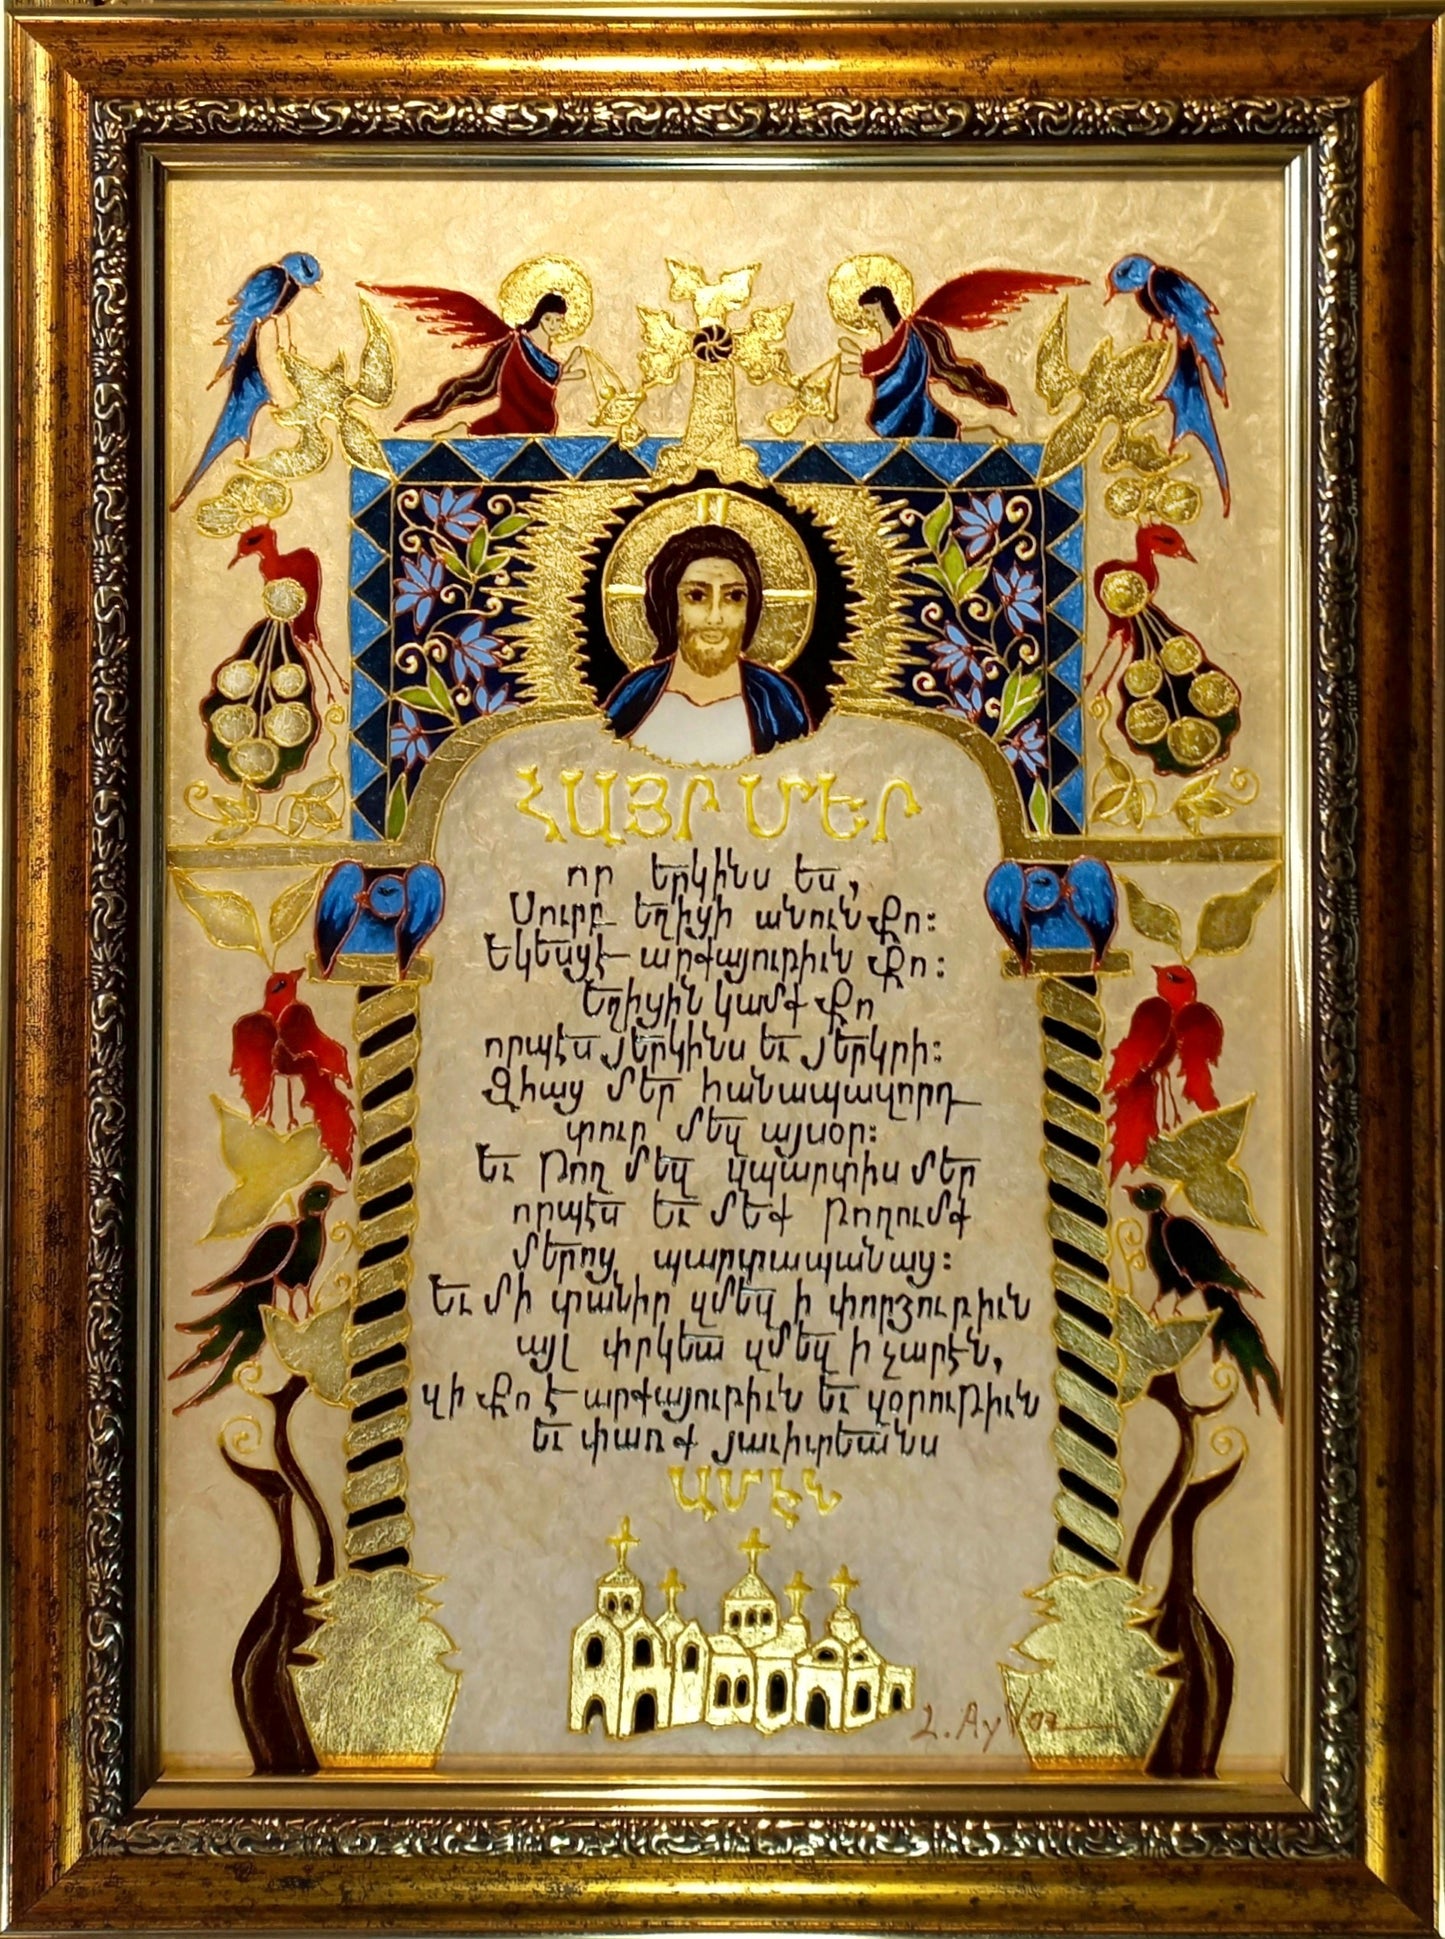 ՀԱՅՐ ՄԵՐ
որ երկինս ես,
Սուրբ եղիցի անուն Քո:
Եկեսցէ արքայութիւն Քո:
Եղիցին կամք Քո
որպէս յերկինս եւ յերկրի:
Զհաց մեր հանապազորդ
տուր մեզ այսօր:
Եւ թող մեզ զպարտիս մեր
որպէս եւ մեք թողումք
մերոց պարտապանաց:
Եւ մի տանիր զմեզ ի փորձութիւն
այլ փրկեա զմեզ ի չարէն,
զի Քո է արքայութիւն եւ զօրութիւն
եւ փառք յաւիտեանս
ԱՄԷՆ